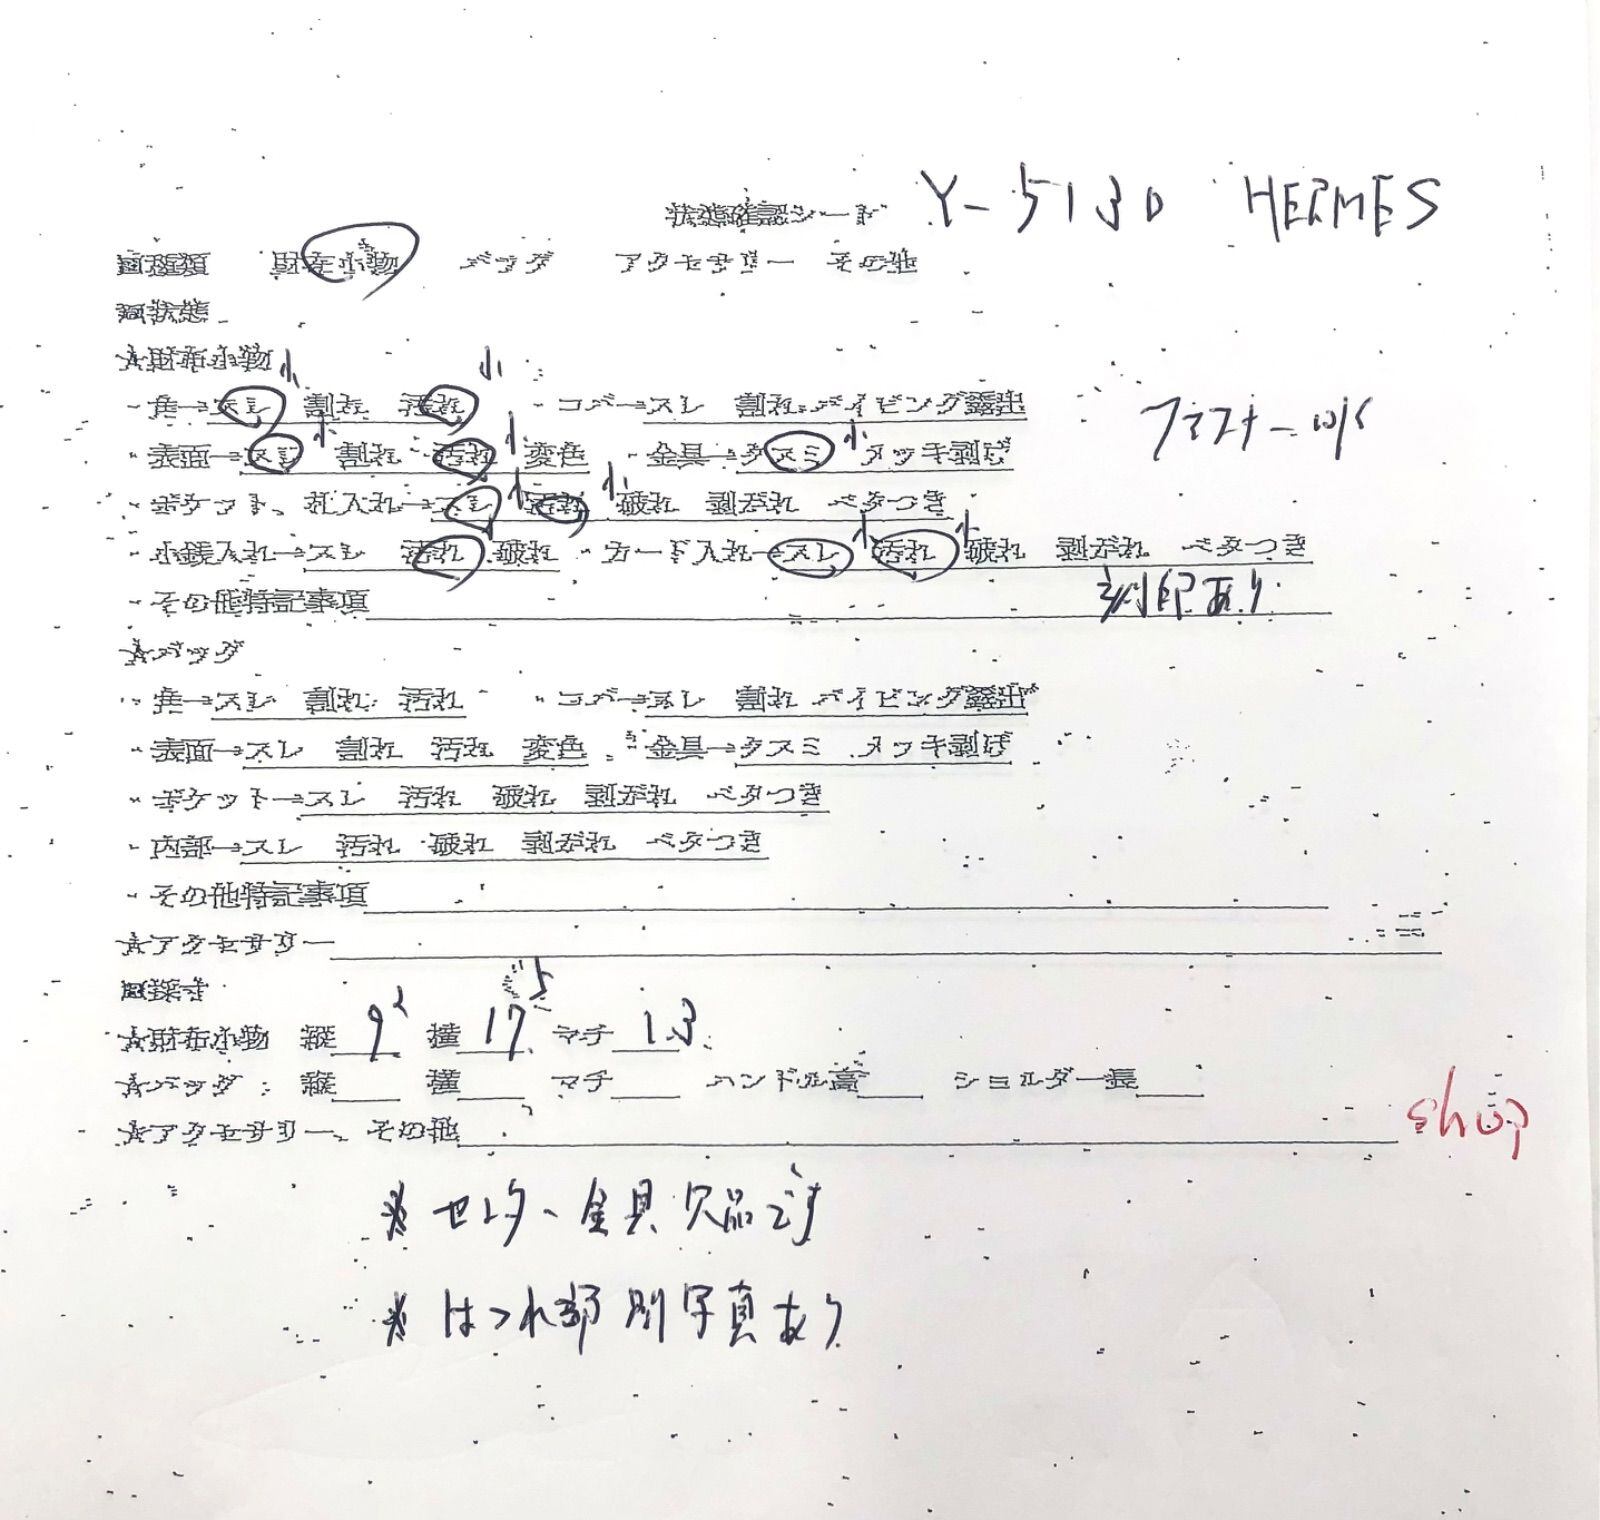 状態確認シート Y-5130 HERMES
■種類 財布小物 バッグ アクセサリー その他
■状態
☆財布小物 小 小
・角→スレ 割れ 汚れ ・コバ→スレ 割れ パイピング露出
ファスナー ok
・表面→スレ 小 割れ 汚れ 小 変色 ・金具→クスミ 小 メッキ剥げ
・ポケット、札入れ→スレ 小 汚れ 小 破れ 剥がれ ベタつき
・小銭入れ→スレ 汚れ 小 破れ ・カード入れ→スレ 小 汚れ 小 破れ 剥がれ ベタつき
・その他特記事項 刻印あり
☆バッグ
・角→スレ 割れ 汚れ ・コバ→スレ 割れ パイピング露出
・表面→スレ 割れ 汚れ 変色 ・金具→クスミ メッキ剥げ
・ポケット→スレ 汚れ 破れ 剥がれ ベタつき
・内部→スレ 汚れ 破れ 剥がれ ベタつき
・その他特記事項
☆アクセサリー
■採寸
☆財布小物 縦 9 横 17 5 マチ 1.3
☆バッグ 縦 横 マチ ハンドル高 ショルダー長
☆アクセサリー、その他
shop
※ センター金具欠品です
※ ほつれ部別写真あり